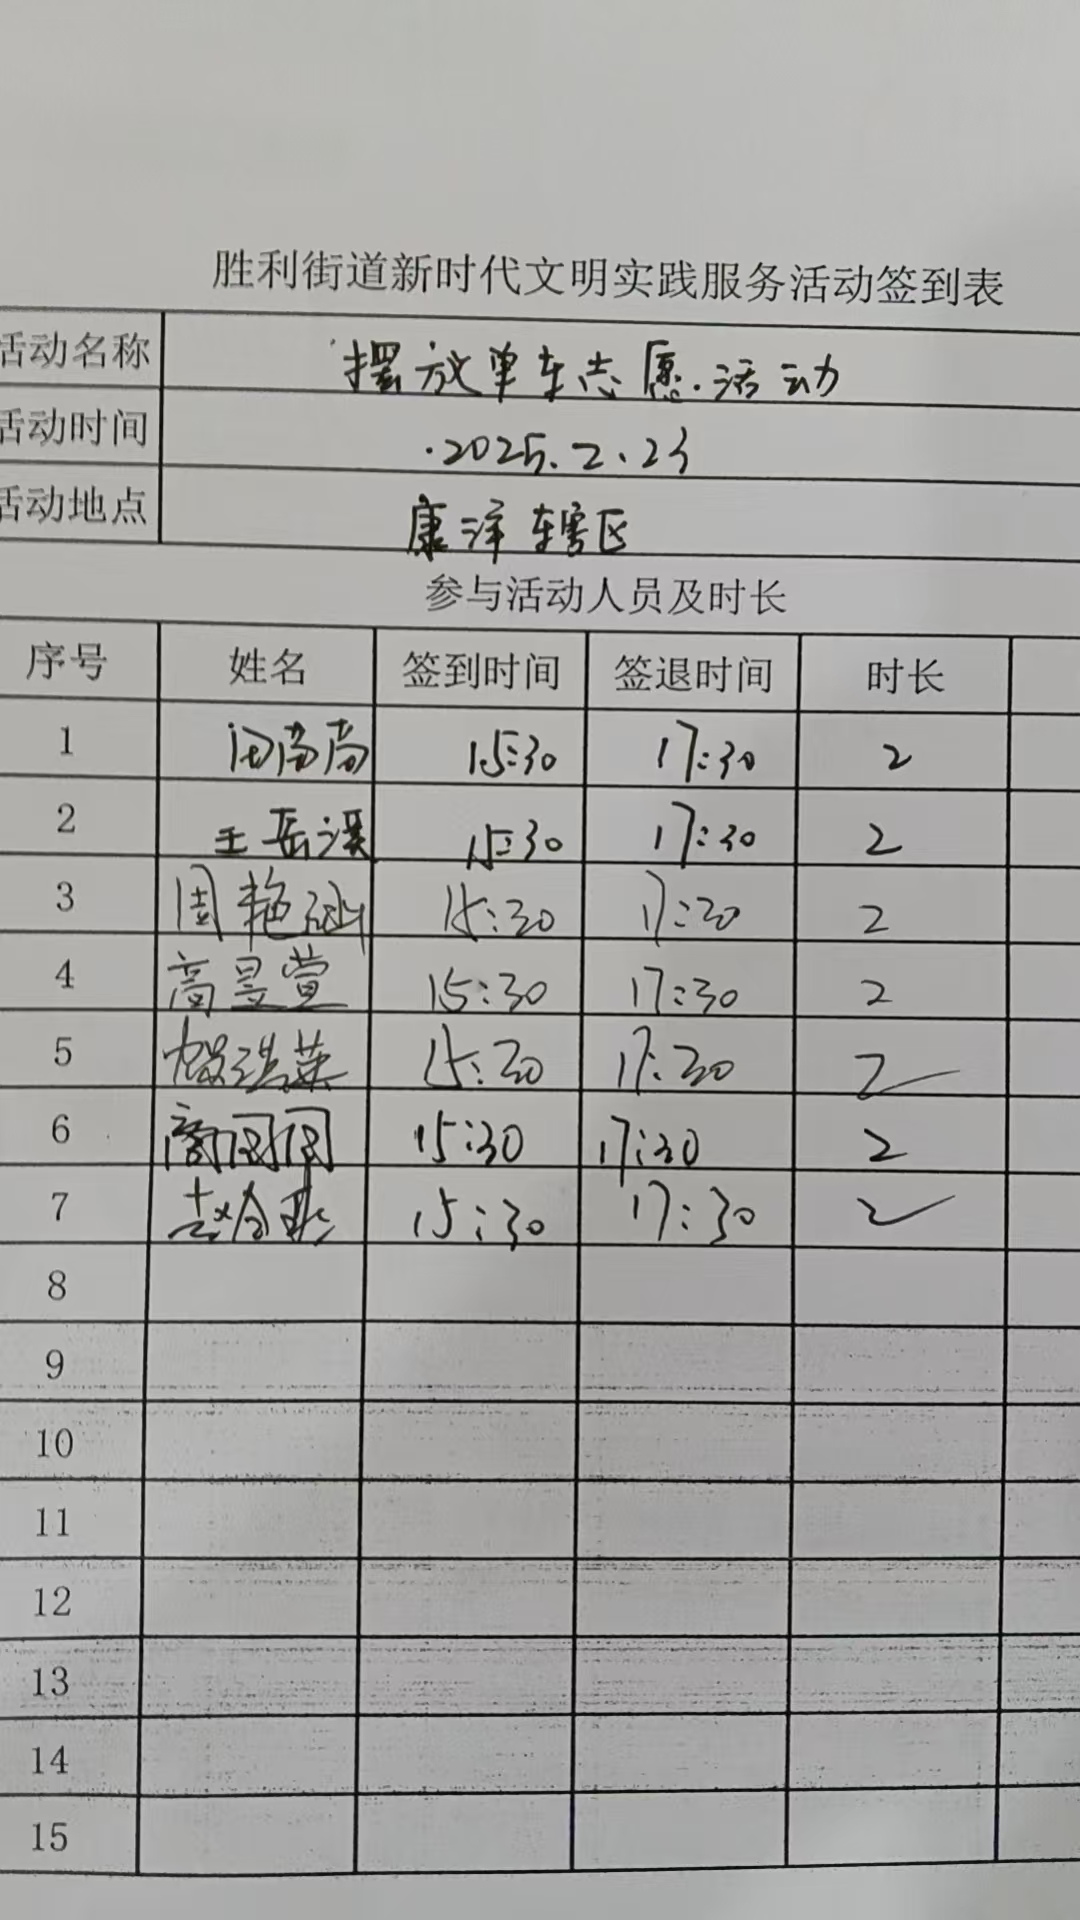 胜利街道新时代文明实践服务活动签到表
活动名称 摆放单车志愿活动
活动时间 2025.2.23
活动地点 康洋辖区
参与活动人员及时长
序号 姓名 签到时间 签退时间 时长
1 15:30 17:30 2
2 王岳溪 15:30 17:30 2
3 周艳涵 15:30 17:30 2
4 高昱萱 15:30 17:30 2
5 15:30 17:30 2
6 15:30 17:30 2
7 15:30 17:30 2
8
9
10
11
12
13
14
15